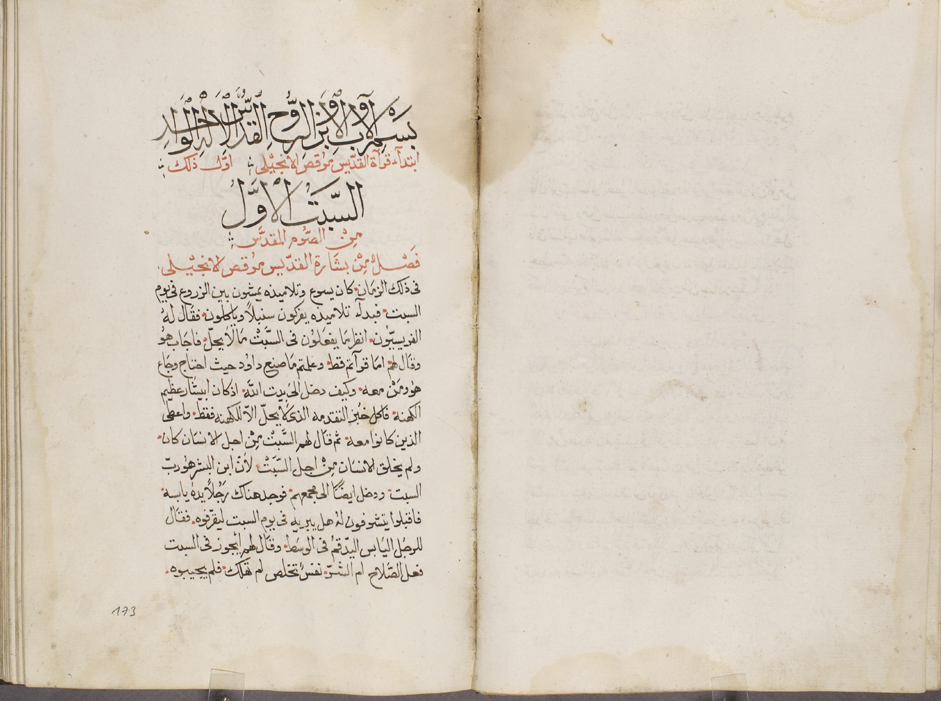 بسم الآب والابن والروح القدس الإله الواحد
ابتداء قرآة القديس مرقص الانجيلى اوّل ذلك
السبت الاوّل
من الصوم المقدس
فصل من بشارة القديس مرقص الانجيلى
فى ذلك الزمان كان يسوع وتلاميذه يمشون بين الزروع فى يوم
السبت فبدآء تلاميذه يفركون سنبلاً وياكلون فقال له
الفريسيون انظر ما يفعلون فى السبت ما لا يحل فاجاب هو
وقال لهم اما قراتم قط وعلمتم ما صنع داود حيث احتاج وجاع
هو ومن معه وكيف دخل الى بيت الله اذ كان ابيثار عظيم
الكهنة فاكل خبز التقدمه الذى لا يحل الا للكهنه فقط واعطى
الذين كانوا معه ثم قال لهم السبت من اجل الانسان كان
ولم يخلق الانسان من اجل السبت لأن ابن البشر هو ربّ
السبت ودخل ايضاً الى مجمعهم فوجد هناك رجلاً يده يابسة
فاقبلوا يتشوفون له هل يبريه فى يوم السبت ليقرفوه فقال
للرجل اليابس اليد قم فى الوسط وقال لهم ايجوز فى السبت
فعل الصلاح ام الشرّ نفس تخلص ام تهلك فلم يجيبوه
173